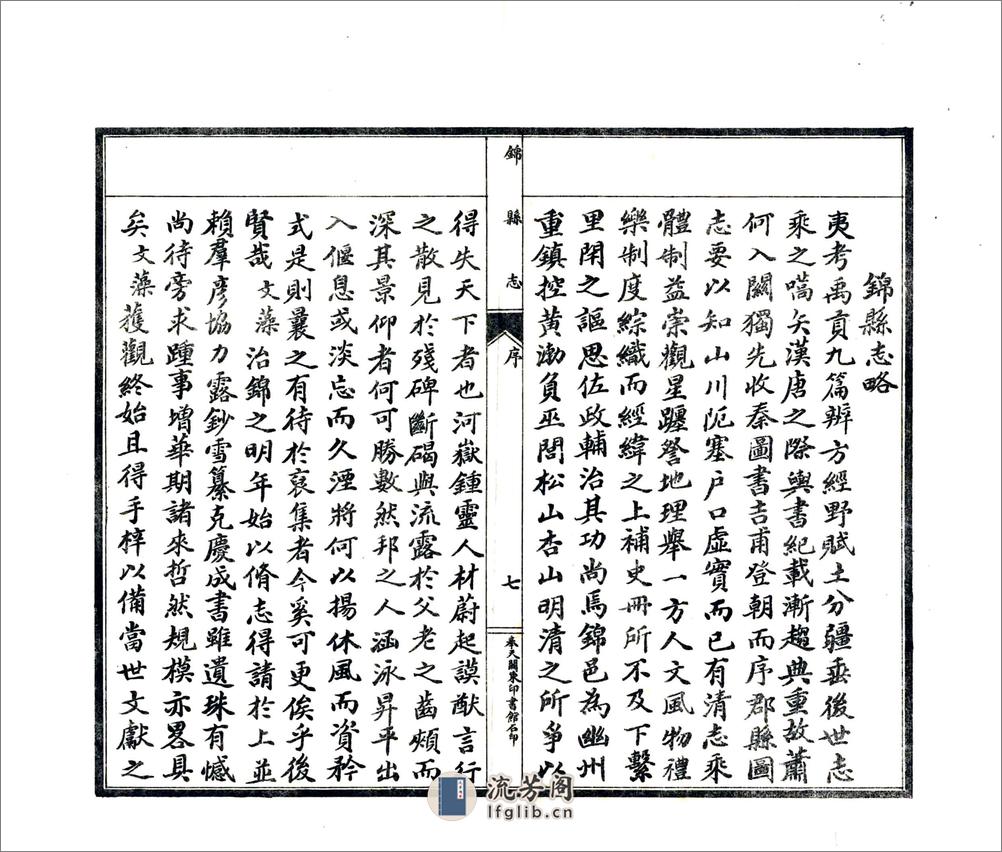 錦縣志略
夷考禹貢九篇辨方經野賦土分疆垂後世志
乘之嚆矢漢唐之際輿書紀載漸趨典重故蕭
何入關獨先收秦圖書吉甫登朝而序郡縣圖
志要以知山川阨塞戶口虛實而已有清志乘
體制益崇觀星躔詧地理舉一方人文風物禮
樂制度綜織而經緯之上補史冊所不及下繫
里閈之謳思佐政輔治其功尚焉錦邑為幽州
重鎮控黃渤負巫閭松山杏山明清之所爭以
錦縣志
序
七
奉天關東印書館石印
得失天下者也河嶽鍾靈人材蔚起謨猷言行
之散見於殘碑斷碣與流露於父老之齒頰而
深其景仰者何可勝數然邦之人涵泳昇平出
入偃息或淡忘而久湮將何以揚休風而資矜
式是則曩之有待於裒集者今奚可更俟乎後
賢哉文藻治錦之明年始以脩志得請於上並
賴羣彥協力露鈔雪纂克慶成書雖遺珠有憾
尚待旁求踵事增華期諸來哲然規模亦畧具
矣文藻獲觀終始且得手梓以備當世文獻之
流芳阁
lfglib.cn